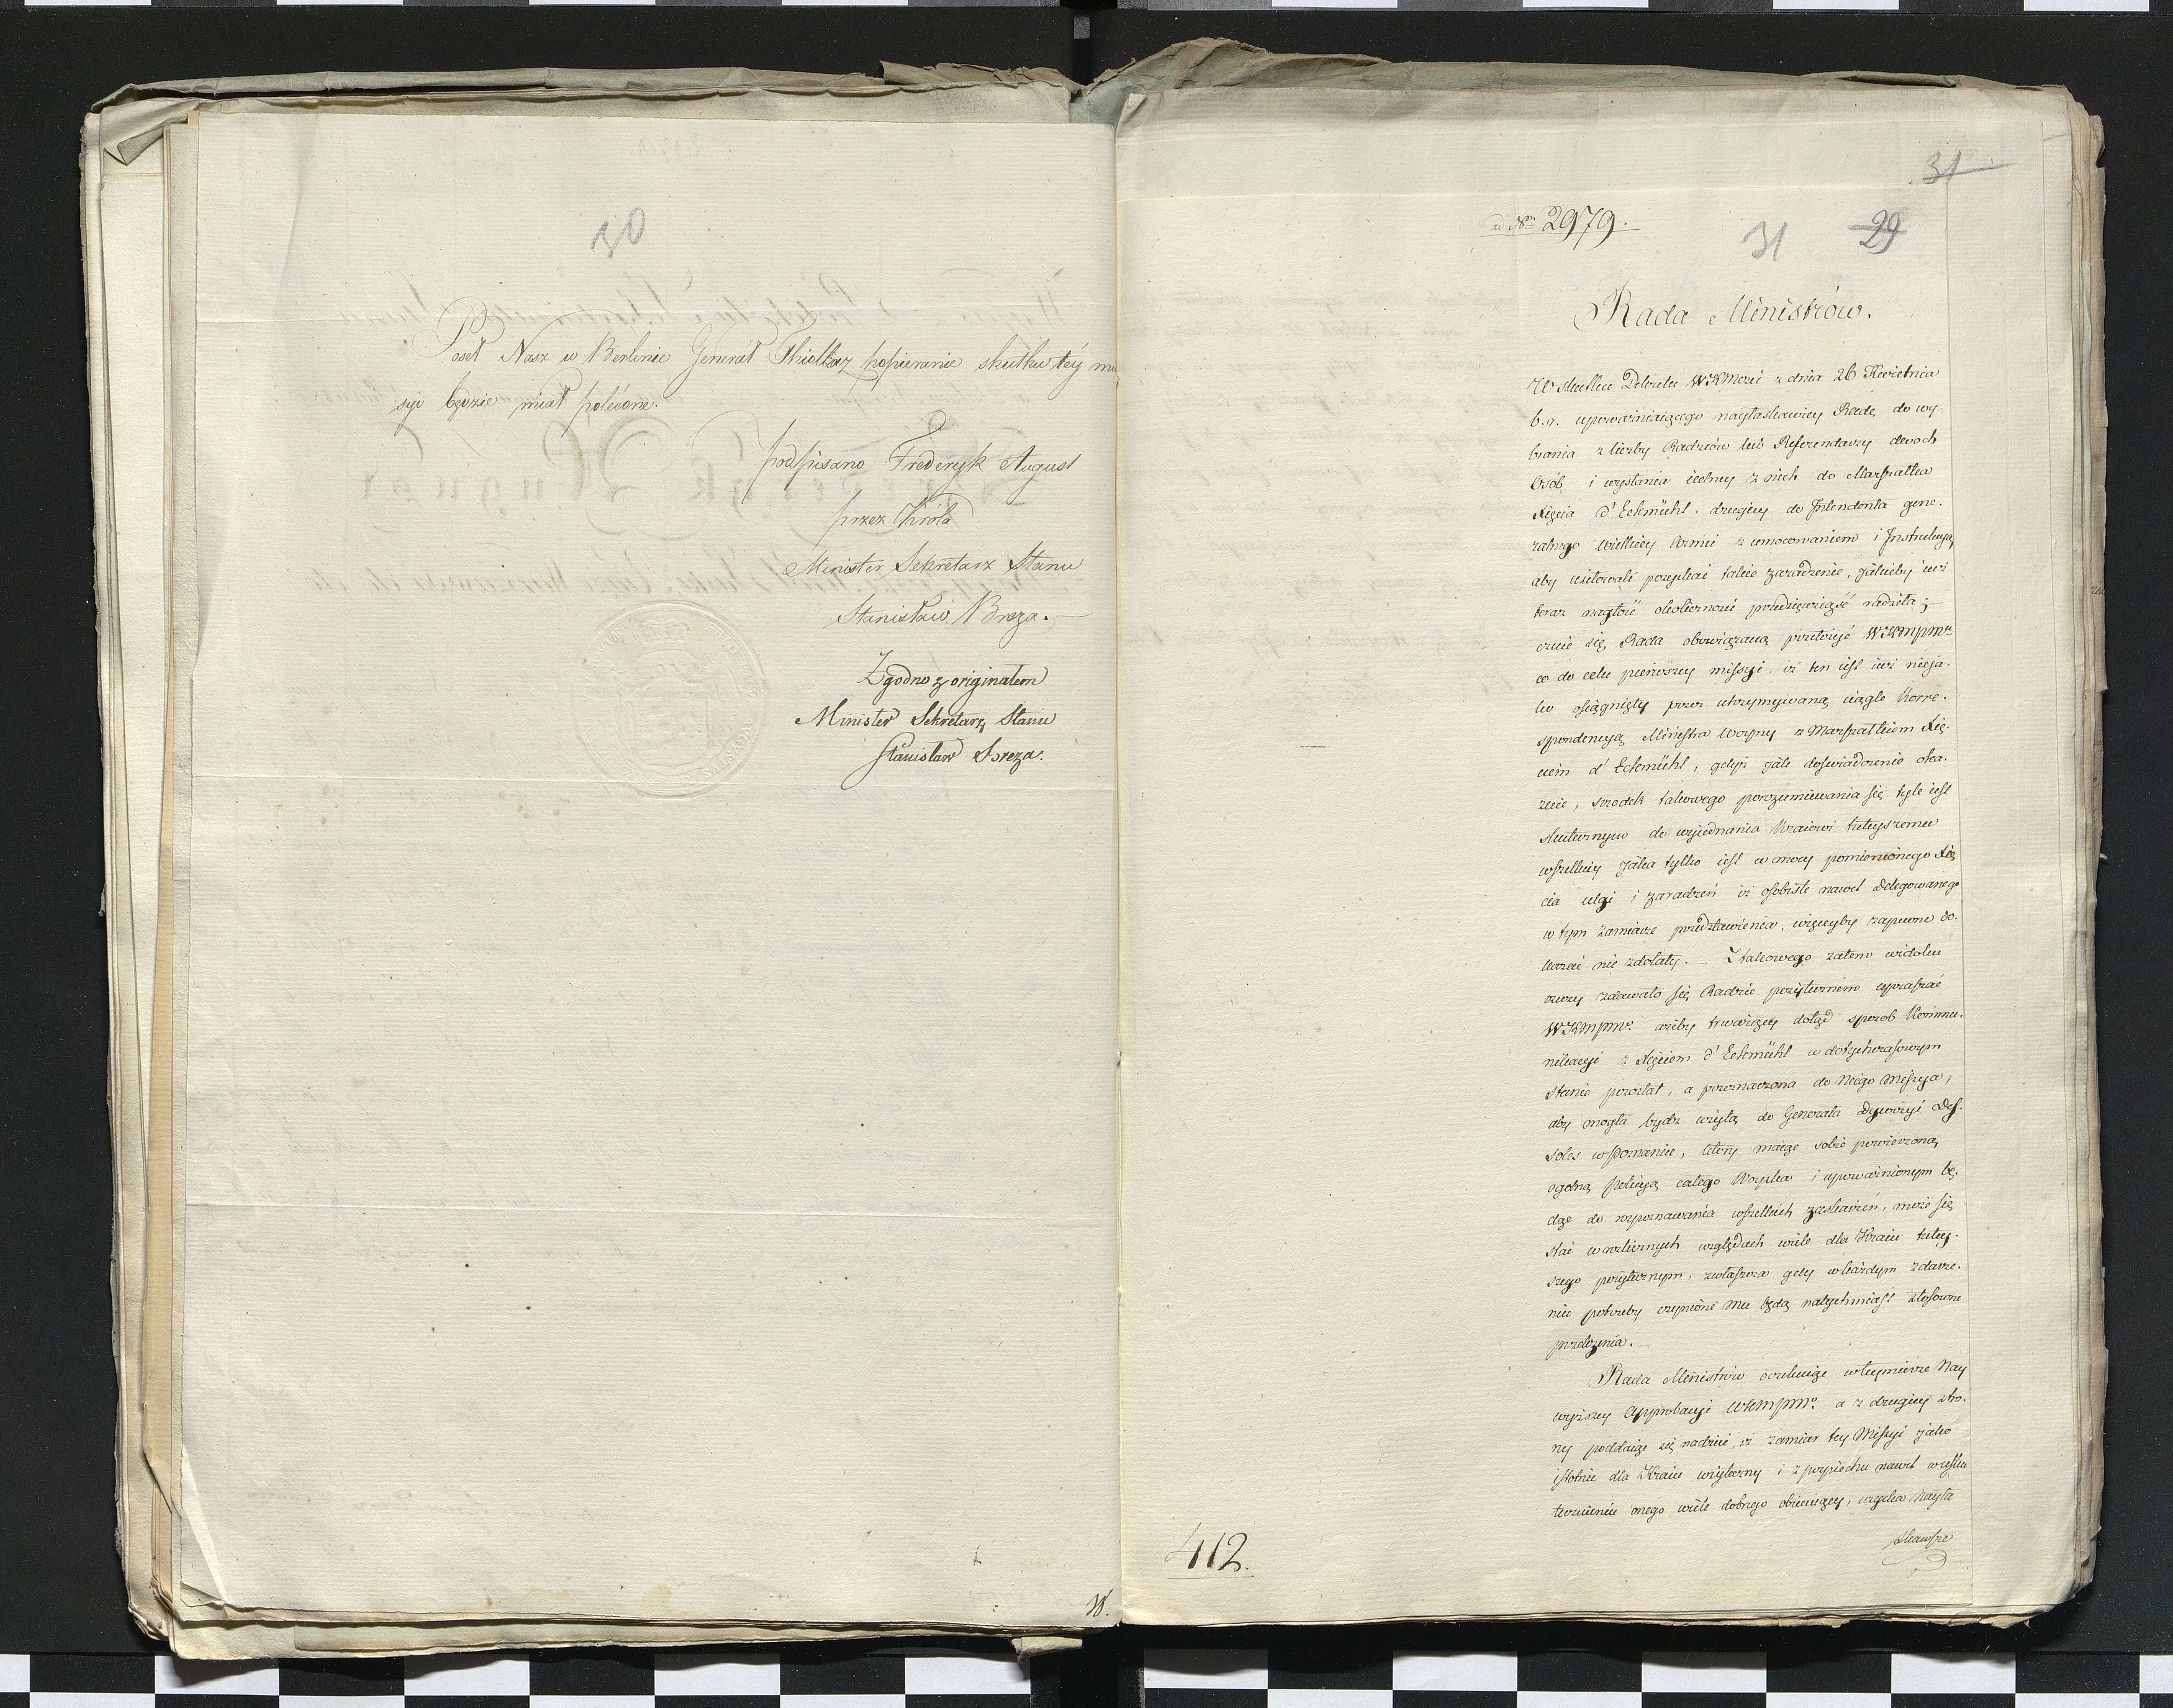 30
Poseł Nasz w Berlinie Generał Thiollaz popieranie skutku téy mi
syi będzie miał polécone.
podpisano Frederyk August
przez Króla
Minister Sekretarz Stanu
Stanisław Breza.
Zgodno z originałem
Minister Sekretarz Stanu
Stanisław Breza.
31
ad Nrm 2979.
31 29
Rada Ministrów.
W skutku Dekretu WKMości z dnia 26 Kwietnia
b. r. upoważniaiącego nayłaskawiey Radę do wy-
brania z liczby Radzców lub Referendarzy dwoch
Osób i wysłania iedney z nich do Marszałka
Xięcia d'Eckmühl, drugiey do Intendenta gene-
ralnego Wielkiey Armii z umocowaniem i Instrukcyą,
aby usiłowali pozyskać takie zaradzenie, jakieby iuż
teraz nagłość okoliczności przedsięwziąść radziła;
czuie się Rada obowiązaną przełożyć WKMPMu
co do celu pierwszey missyi, iż ten iest iuż nieja-
ko osiągnięty przez utrzymywaną ciągle Korre-
spondencyą Ministra Woyny z Marszałkiem Xię-
ciem d'Eckmühl, gdyż jak doświadczenie oka-
zuie, srzodek takowego porozumiewania się tyle iest
skutecznym do wyiednania Kraiowi tuteyszemu
wszelkiey jaka tylko iest w mocy pomienionego Xię
cia ulgi i zaradzeń iż osobiste nawet Delegowanego
w tym zamiarze przedstawienia, więceyby zapewne do-
kazać nie zdołały. — Z takowego zatem widoku
rzeczy zdawało się Radzie pożytecznem upraszać
WKMPMu ażeby trwaiący dotąd sposob Kommu-
nikacyi z Xięciem d'Eckmühl w dotychczasowym
stanie pozostał, a przeznaczona do Niego Missya,
aby mogła bydz użytą do Generała Dywizyi Des-
soles w Poznaniu, ktory maiąc sobie powierzoną
ogolną Policyą całego Woyska i upoważnionym bę-
dąc do rozpoznawania wszelkich zaskarżeń, może się
stać w rozlicznych względach wiele dla Kraiu tutey-
szego pożytecznym, zwłaszcza gdy w każdym zdarze-
niu potrzeby czynione mu będą natychmiast stosowne
przełożenia.
Rada Ministrów oczekuiąc w tey mierze Nay
wyższey Approbacyi WKMPMu a z drugiey stro-
ny poddaiąc się nadziei, iż zamiar tey Missyi jako
istotnie dla Kraiu użyteczny i z pospiechu nawet w usku
tecznieniu onego wiele dobrego obiecuiący, uzyska Nayła
skawsze
412.